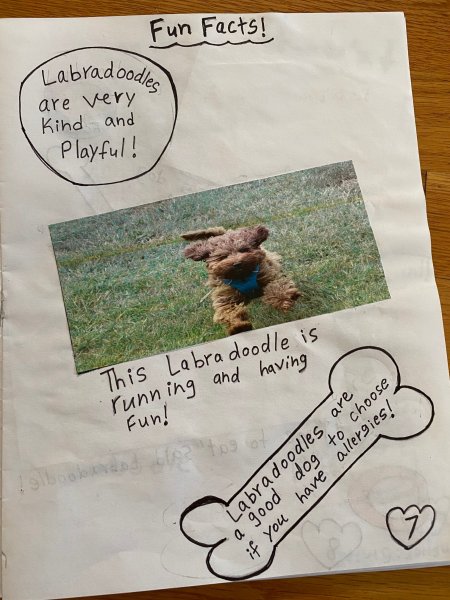 Fun Facts!
Labradoodles
are very
Kind and
Playful!
This Labradoodle is
running and having
Fun!
Labradoodles are
a good dog to choose
if you have allergies!
7
to eat" said Labradoodle!
8